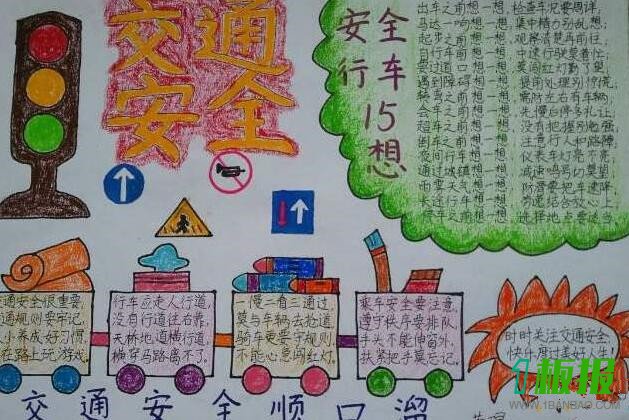 交通
安全
安全
行车
15
想
出车之前想一想,检查车况要周详,
马达一响想一想,集中精力别乱想;
起步之前想一想,观察清楚再前往;
自行车前想一想,中速行驶莫着忙;
要过道口想一想,莫闯红灯勤了望;
遇到障碍想一想,提前处理别惊慌;
转弯之前想一想,需防左右有车辆;
会车之前想一想,先慢后停多礼让;
超车之前想一想,没有把握别勉强;
倒车之前想一想,注意行人和路障;
夜间行车想一想,仪表车灯亮不亮;
通过城镇想一想,减速鸣号切莫望
雨雾天气想一想,防滑要把车速降
长途行车想一想,劳逸结合放心上
停车之前想一想,选择地点要适当
交通安全很重要
交通规则要牢记,
从小养成好习惯,
不在路上玩游戏.
行车应走人行道,
没有行道往右靠,
天桥地道横行道,
横穿马路离不了.
一慢二看三通过,
莫与车辆去抢道.
骑车更要守规则
不能心急闯红灯.
乘车安全要注意,
遵守秩序要排队,
手头不能伸窗外,
扶紧把手莫忘记.
时时关注交通安全,
快快乐度过美好人生!
交通安全顺口溜
1板报
WWW.1BANBAO.COM